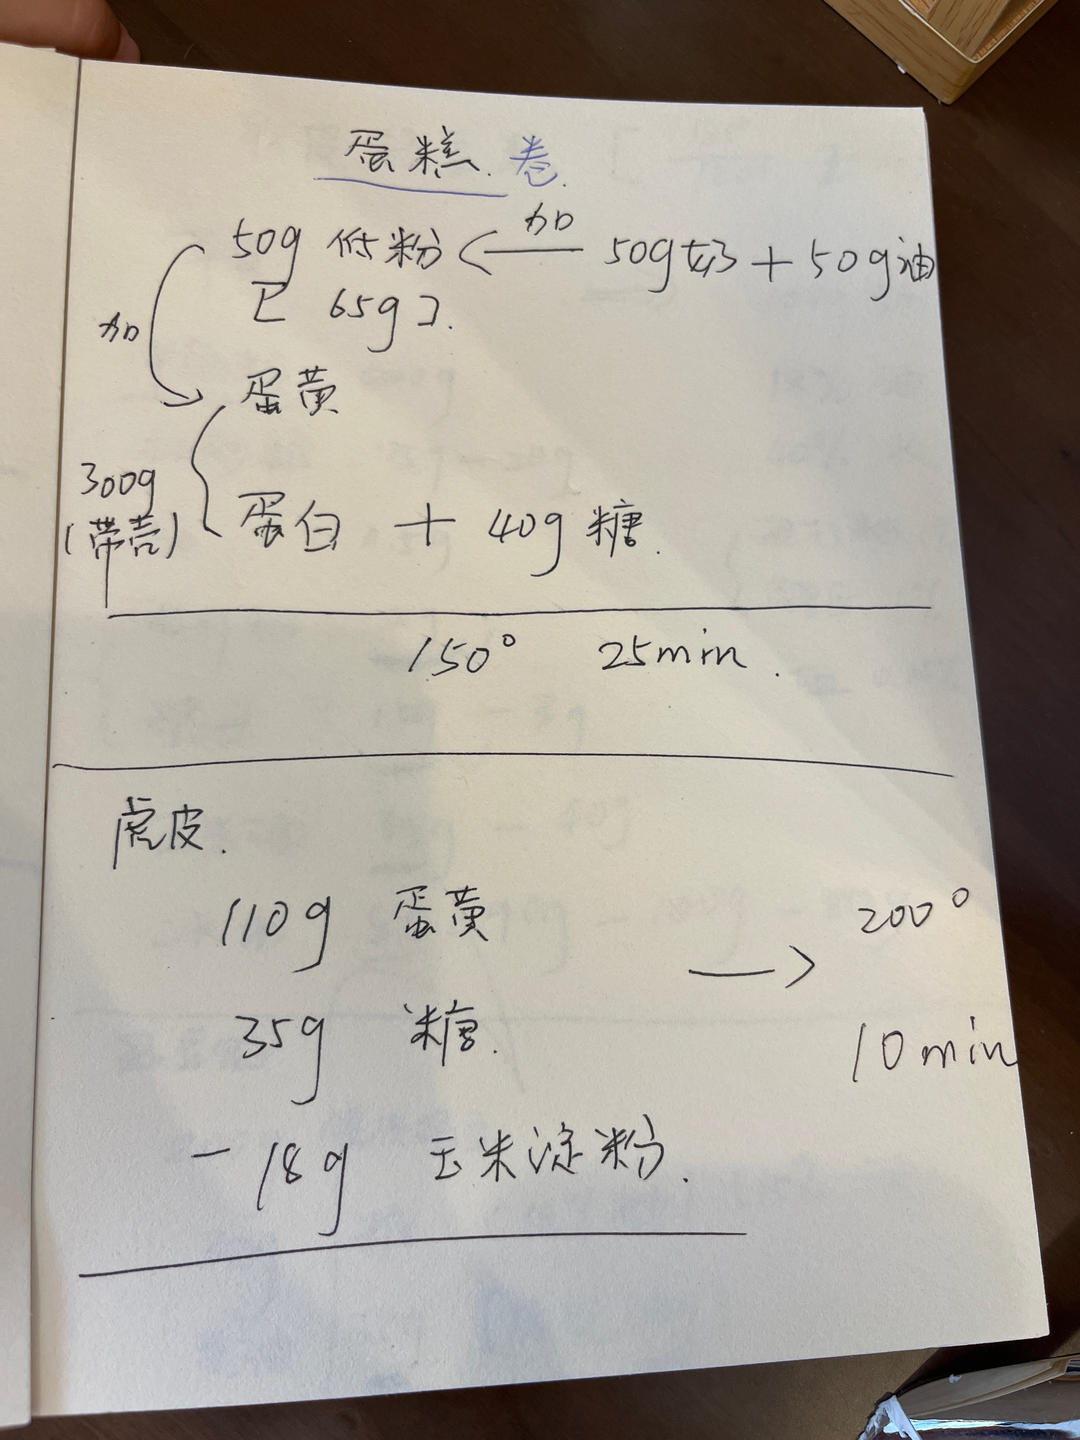 蛋糕.卷.
加
50g 低粉 <— 50g奶+50g油
[ 65g].
加
蛋黄
300g
(带壳)
蛋白 + 40g 糖.
150° 25min.
虎皮.
110g 蛋黄
200°
—>
35g 糖.
10min
- 18g 玉米淀粉.